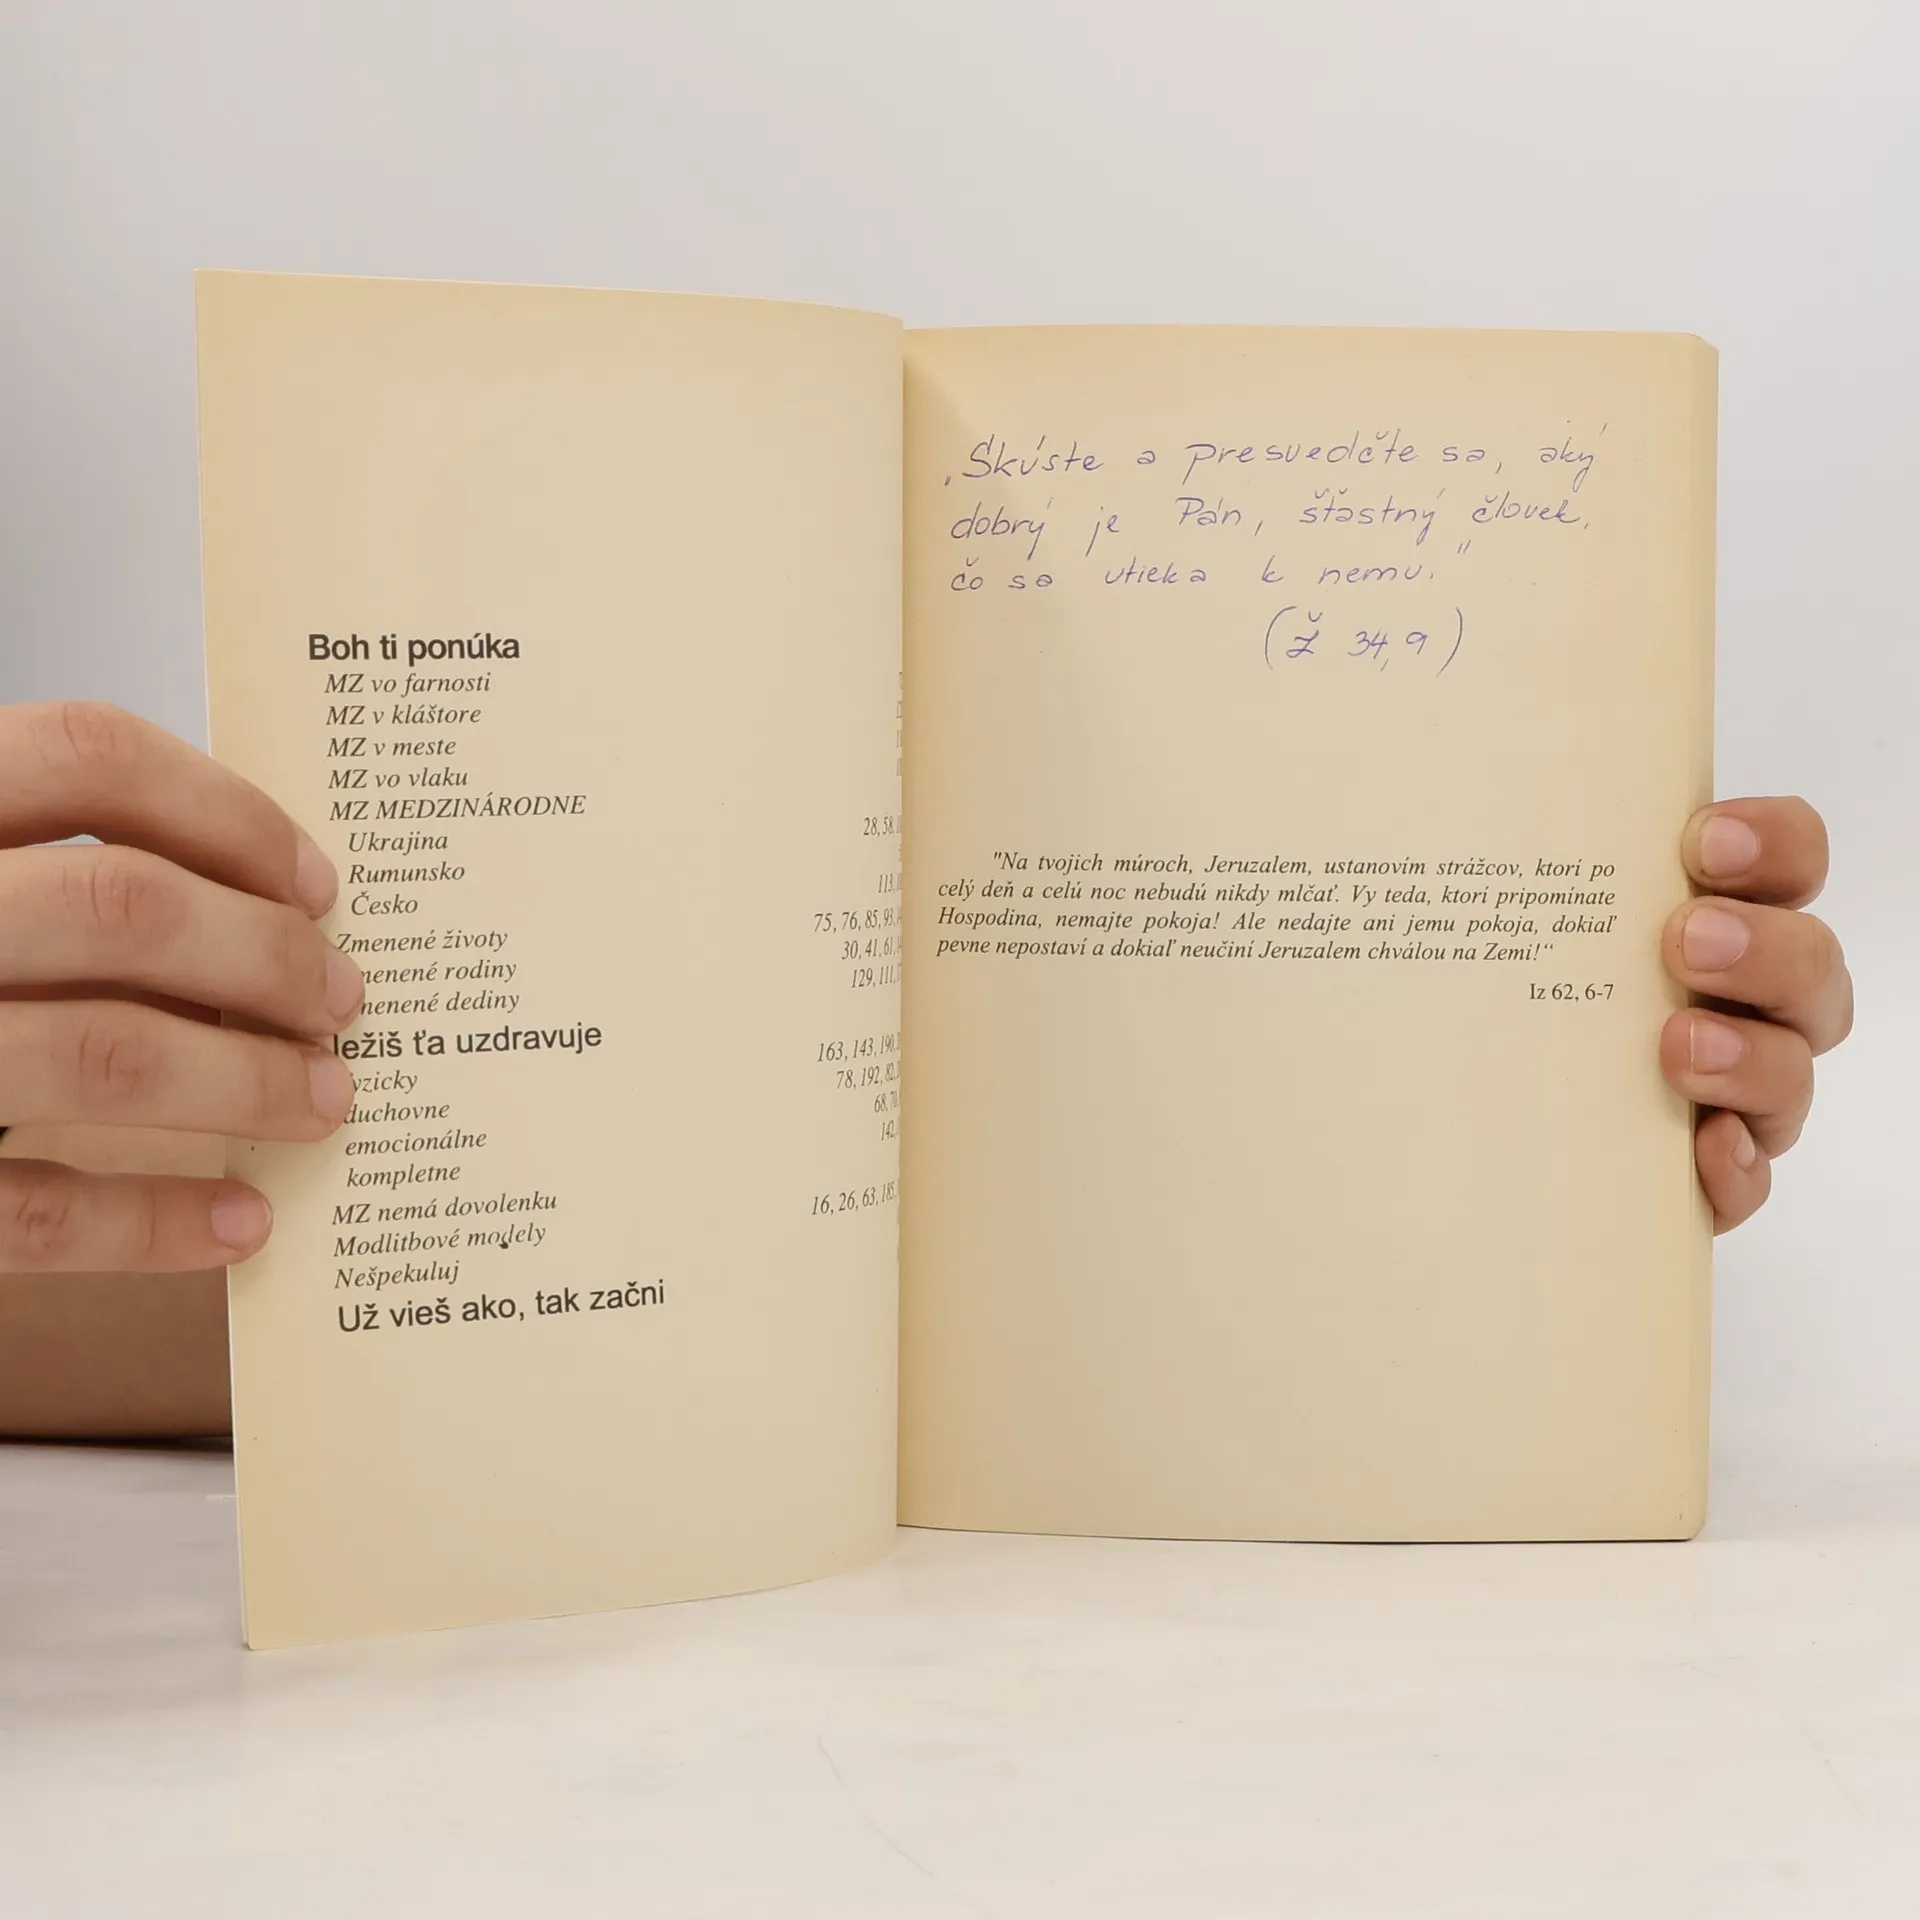 Boh ti ponúka
MZ vo farnosti
MZ v kláštore
MZ v meste
MZ vo vlaku
MZ MEDZINÁRODNE
Ukrajina 28, 58,
Rumunsko
Česko 113,
Zmenené životy 75, 76, 85, 93,
menené rodiny 30, 41, 61,
menené dediny 129, 111,
Ježiš ťa uzdravuje
yzicky 163, 143, 190,
duchovne 78, 192, 82,
emocionálne 68, 70,
kompletne 142,
MZ nemá dovolenku
Modlitbové modely 16, 26, 63, 185,
Nešpekuluj
Už vieš ako, tak začni
„Skúste a presvedčte sa, aký
dobrý je Pán, šťastný človek,
čo sa utieka k nemu."
(Ž 34,9)
"Na tvojich múroch, Jeruzalem, ustanovím strážcov, ktorí po
celý deň a celú noc nebudú nikdy mlčať. Vy teda, ktorí pripomínate
Hospodina, nemajte pokoja! Ale nedajte ani jemu pokoja, dokiaľ
pevne nepostaví a dokiaľ neučiní Jeruzalem chválou na Zemi!“
Iz 62, 6-7